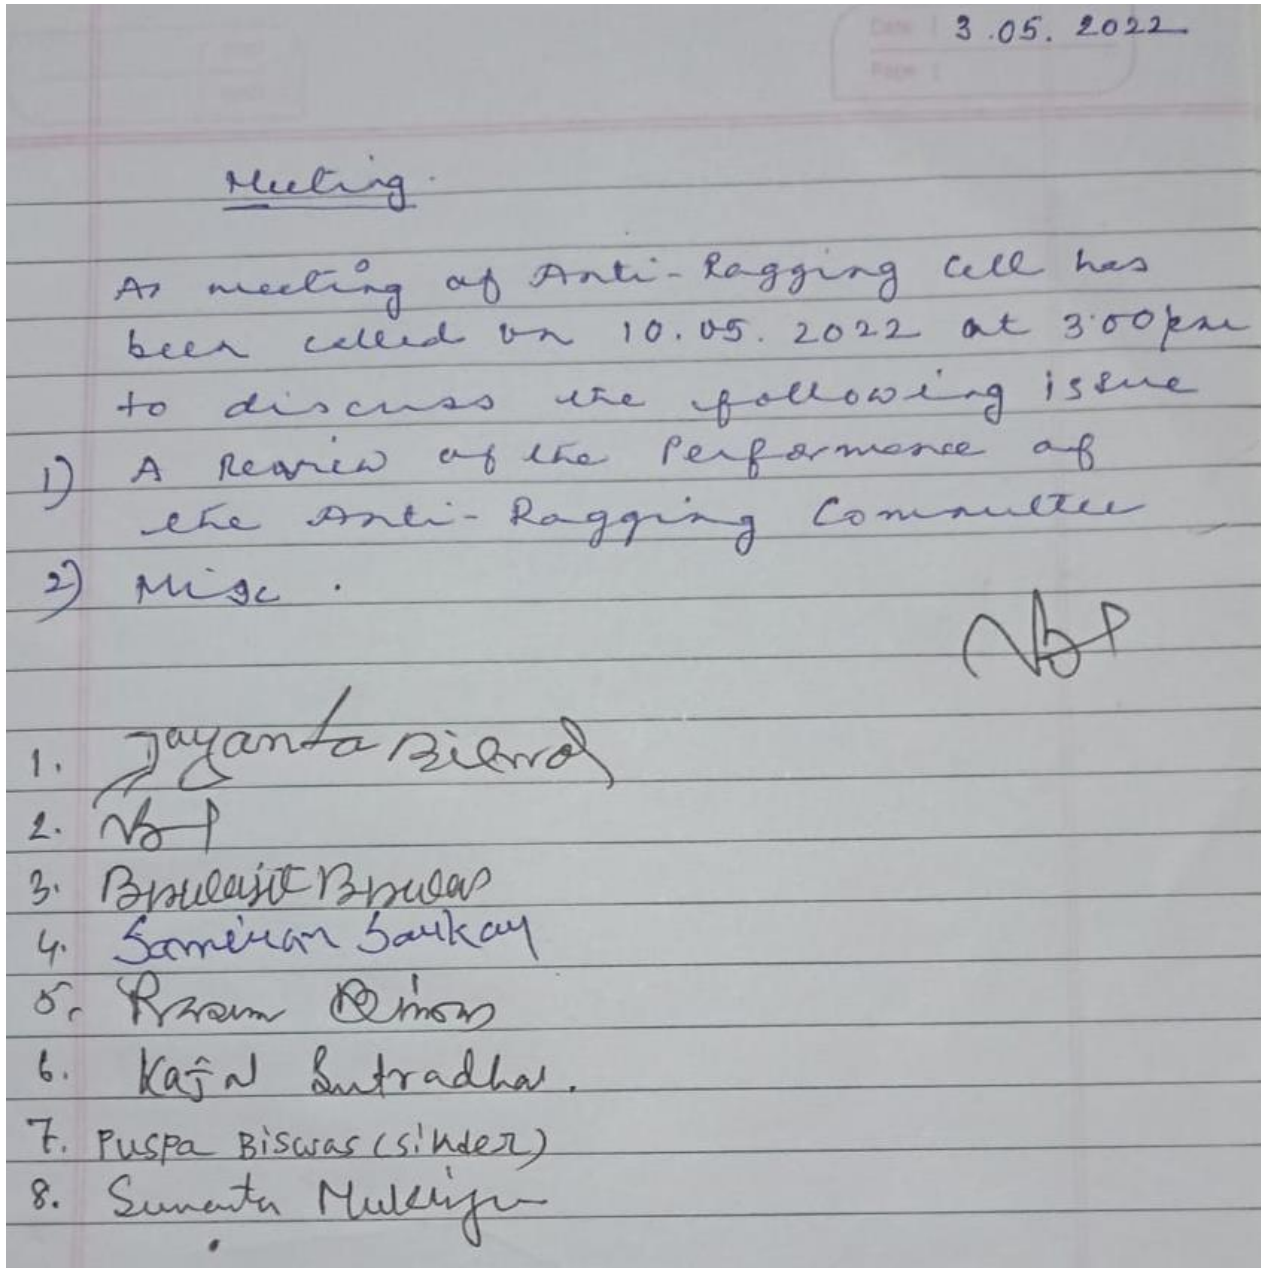 Date : 3.05.2022
Page :
Meeting.
A meeting of Anti-Ragging Cell has
been called on 10.05.2022 at 3.00 pm
to discuss the following issue
1) A Review of the Performance of
the Anti-Ragging Committee
2) Misc.
1. Jayanta
2.
3. Biswajit Biswas
4. Samiran Sarkar
5.
6. Kajal Sutradhar.
7. Puspa Biswas (Sikder)
8. Mukherjee